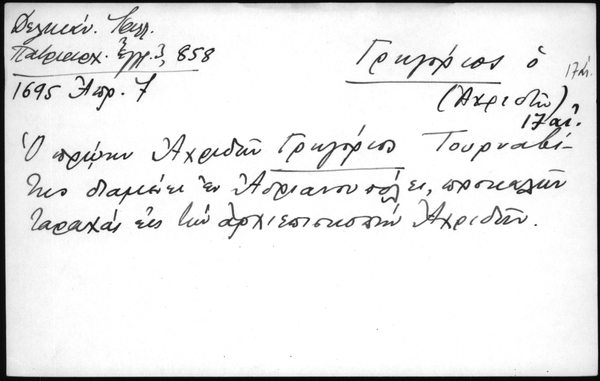 Δελικάν. Καλ.
Πατριαρχ. Ἔγγρ. 3, 858
1695 Ἀπρ. 7
Γρηγόριος ὁ
17 αἰ.
(Ἀχριδῶν)
17 αἰ.
Ὁ πρώην Ἀχριδῶν Γρηγόριος Τουρναβί-
της διαμένει ἐν Ἀδριανουπόλει, προκαλῶν
ταραχάς εἰς τὴν ἀρχιεπισκοπὴν Ἀχριδῶν.